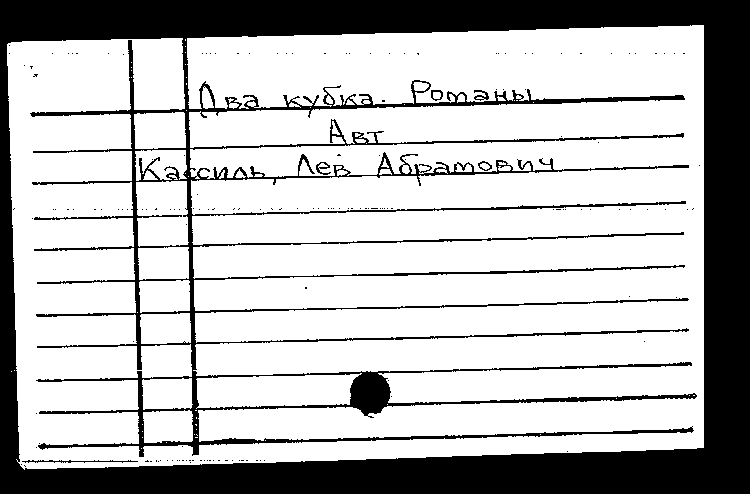 Два кубка. Романы
Авт
Кассиль, Лев Абрамович